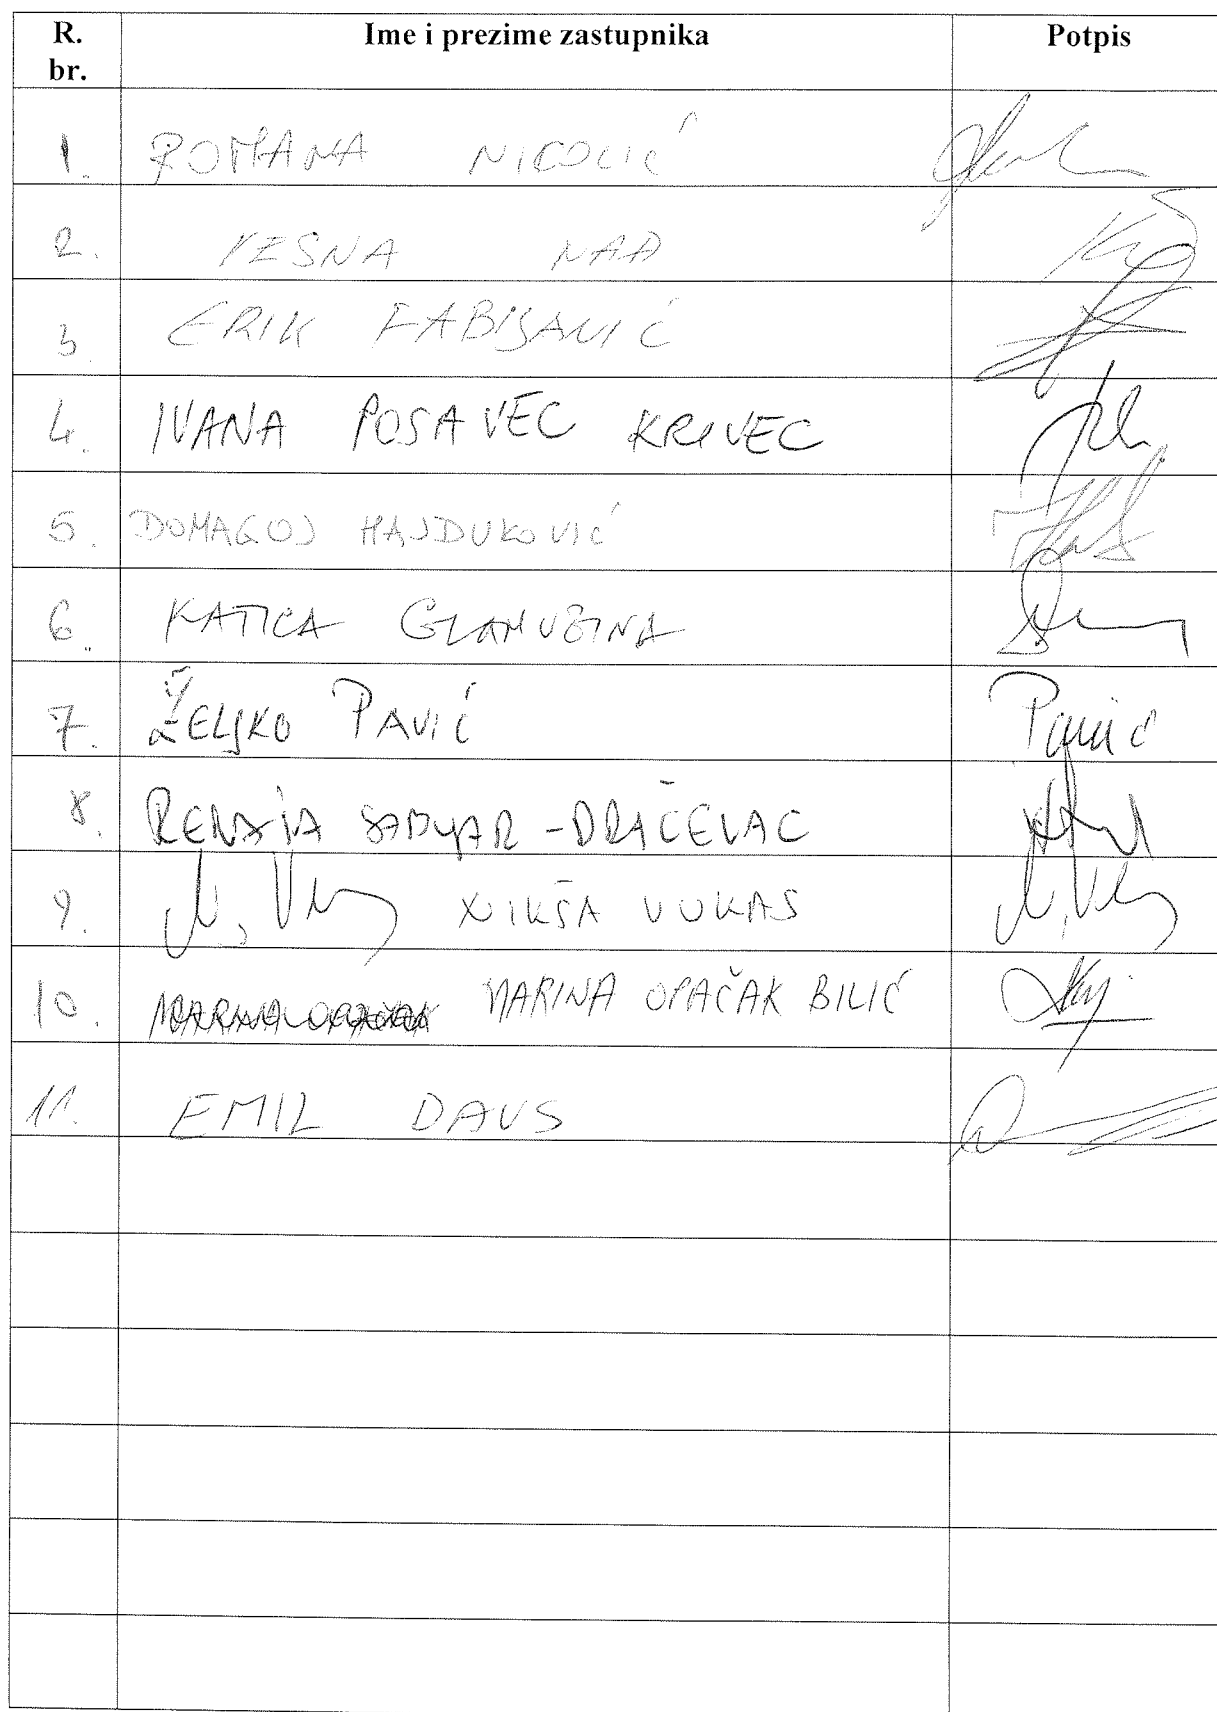 R. br. Ime i prezime zastupnika Potpis
1. ROMANA NIKOLIĆ
2. VESNA NAĐ
3. ERIK FABIJANIĆ
4. IVANA POSAVEC KRIVEC
5. DOMAGOJ HAJDUKOVIĆ
6. KATICA GLAMUZINA
7. ŽELJKO PAVIĆ Pavić
8. -DRAČEVAC
9. N. NIKŠA VUKAS
10. MARINA OPAČAK BILIĆ
11. EMIL DAUS